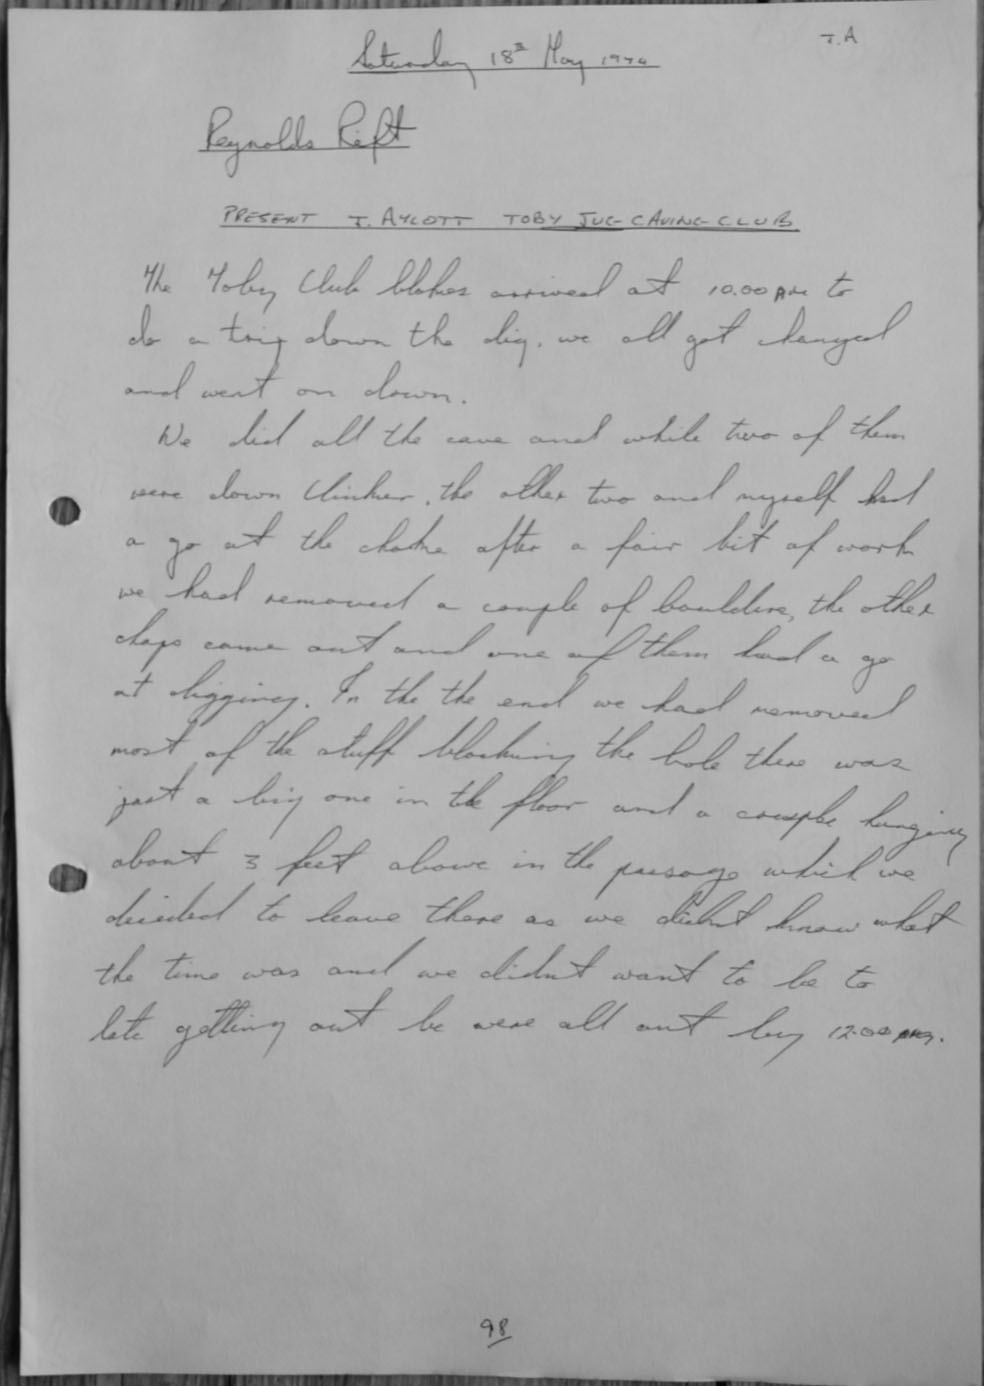 T.A
Saturday 18th May 1974
Reynolds Rift
PRESENT T. AYLOTT TOBY JUG CAVING CLUB
The Toby Club blokes arrived at 10.00 AM to
do a trip down the dig. we all got changed
and went on down.
We did all the cave and while two of them
were down Clinker, the other two and myself had
a go at the choke after a fair bit of work
we had removed a couple of boulders, the other
chaps came out and one of them had a go
at digging. In the the end we had removed
most of the stuff blocking the hole there was
just a big one in the floor and a couple hanging
about 3 feet above in the passage which we
decided to leave there as we didnt know what
the time was and we didnt want to be to
late getting out be were all out by 12.00
98